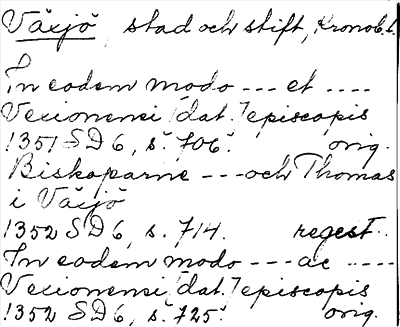 Växjö, stad och stift, Kronob.l.
In eodem modo --- et ----
Vexionensi [dat.] episcopis
1351 SD 6, s. 706. orig.
Biskoparne --- och Thomas
i Växjö
1352 SD 6, s. 714. regest.
In eodem modo --- ac -----
Vexionensi [dat.] episcopis
1352 SD 6, s. 725. orig.